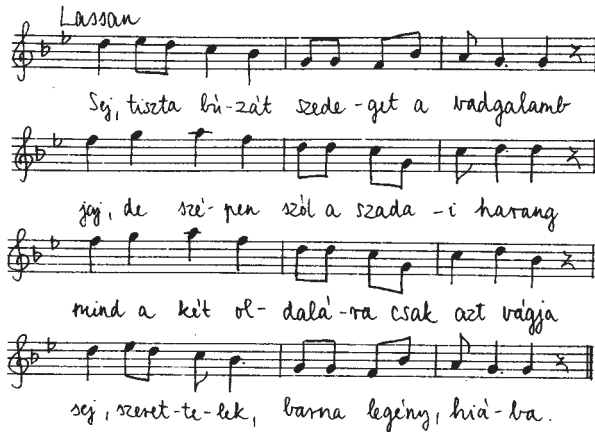 Lassan
Sej, tiszta bú-zát szede-get a vadgalamb
jaj, de szé-pen szól a szada-i harang
mind a két ol-dalá-ra csak azt vágja
sej, szeret-te-lek, barna legény, hiá-ba.